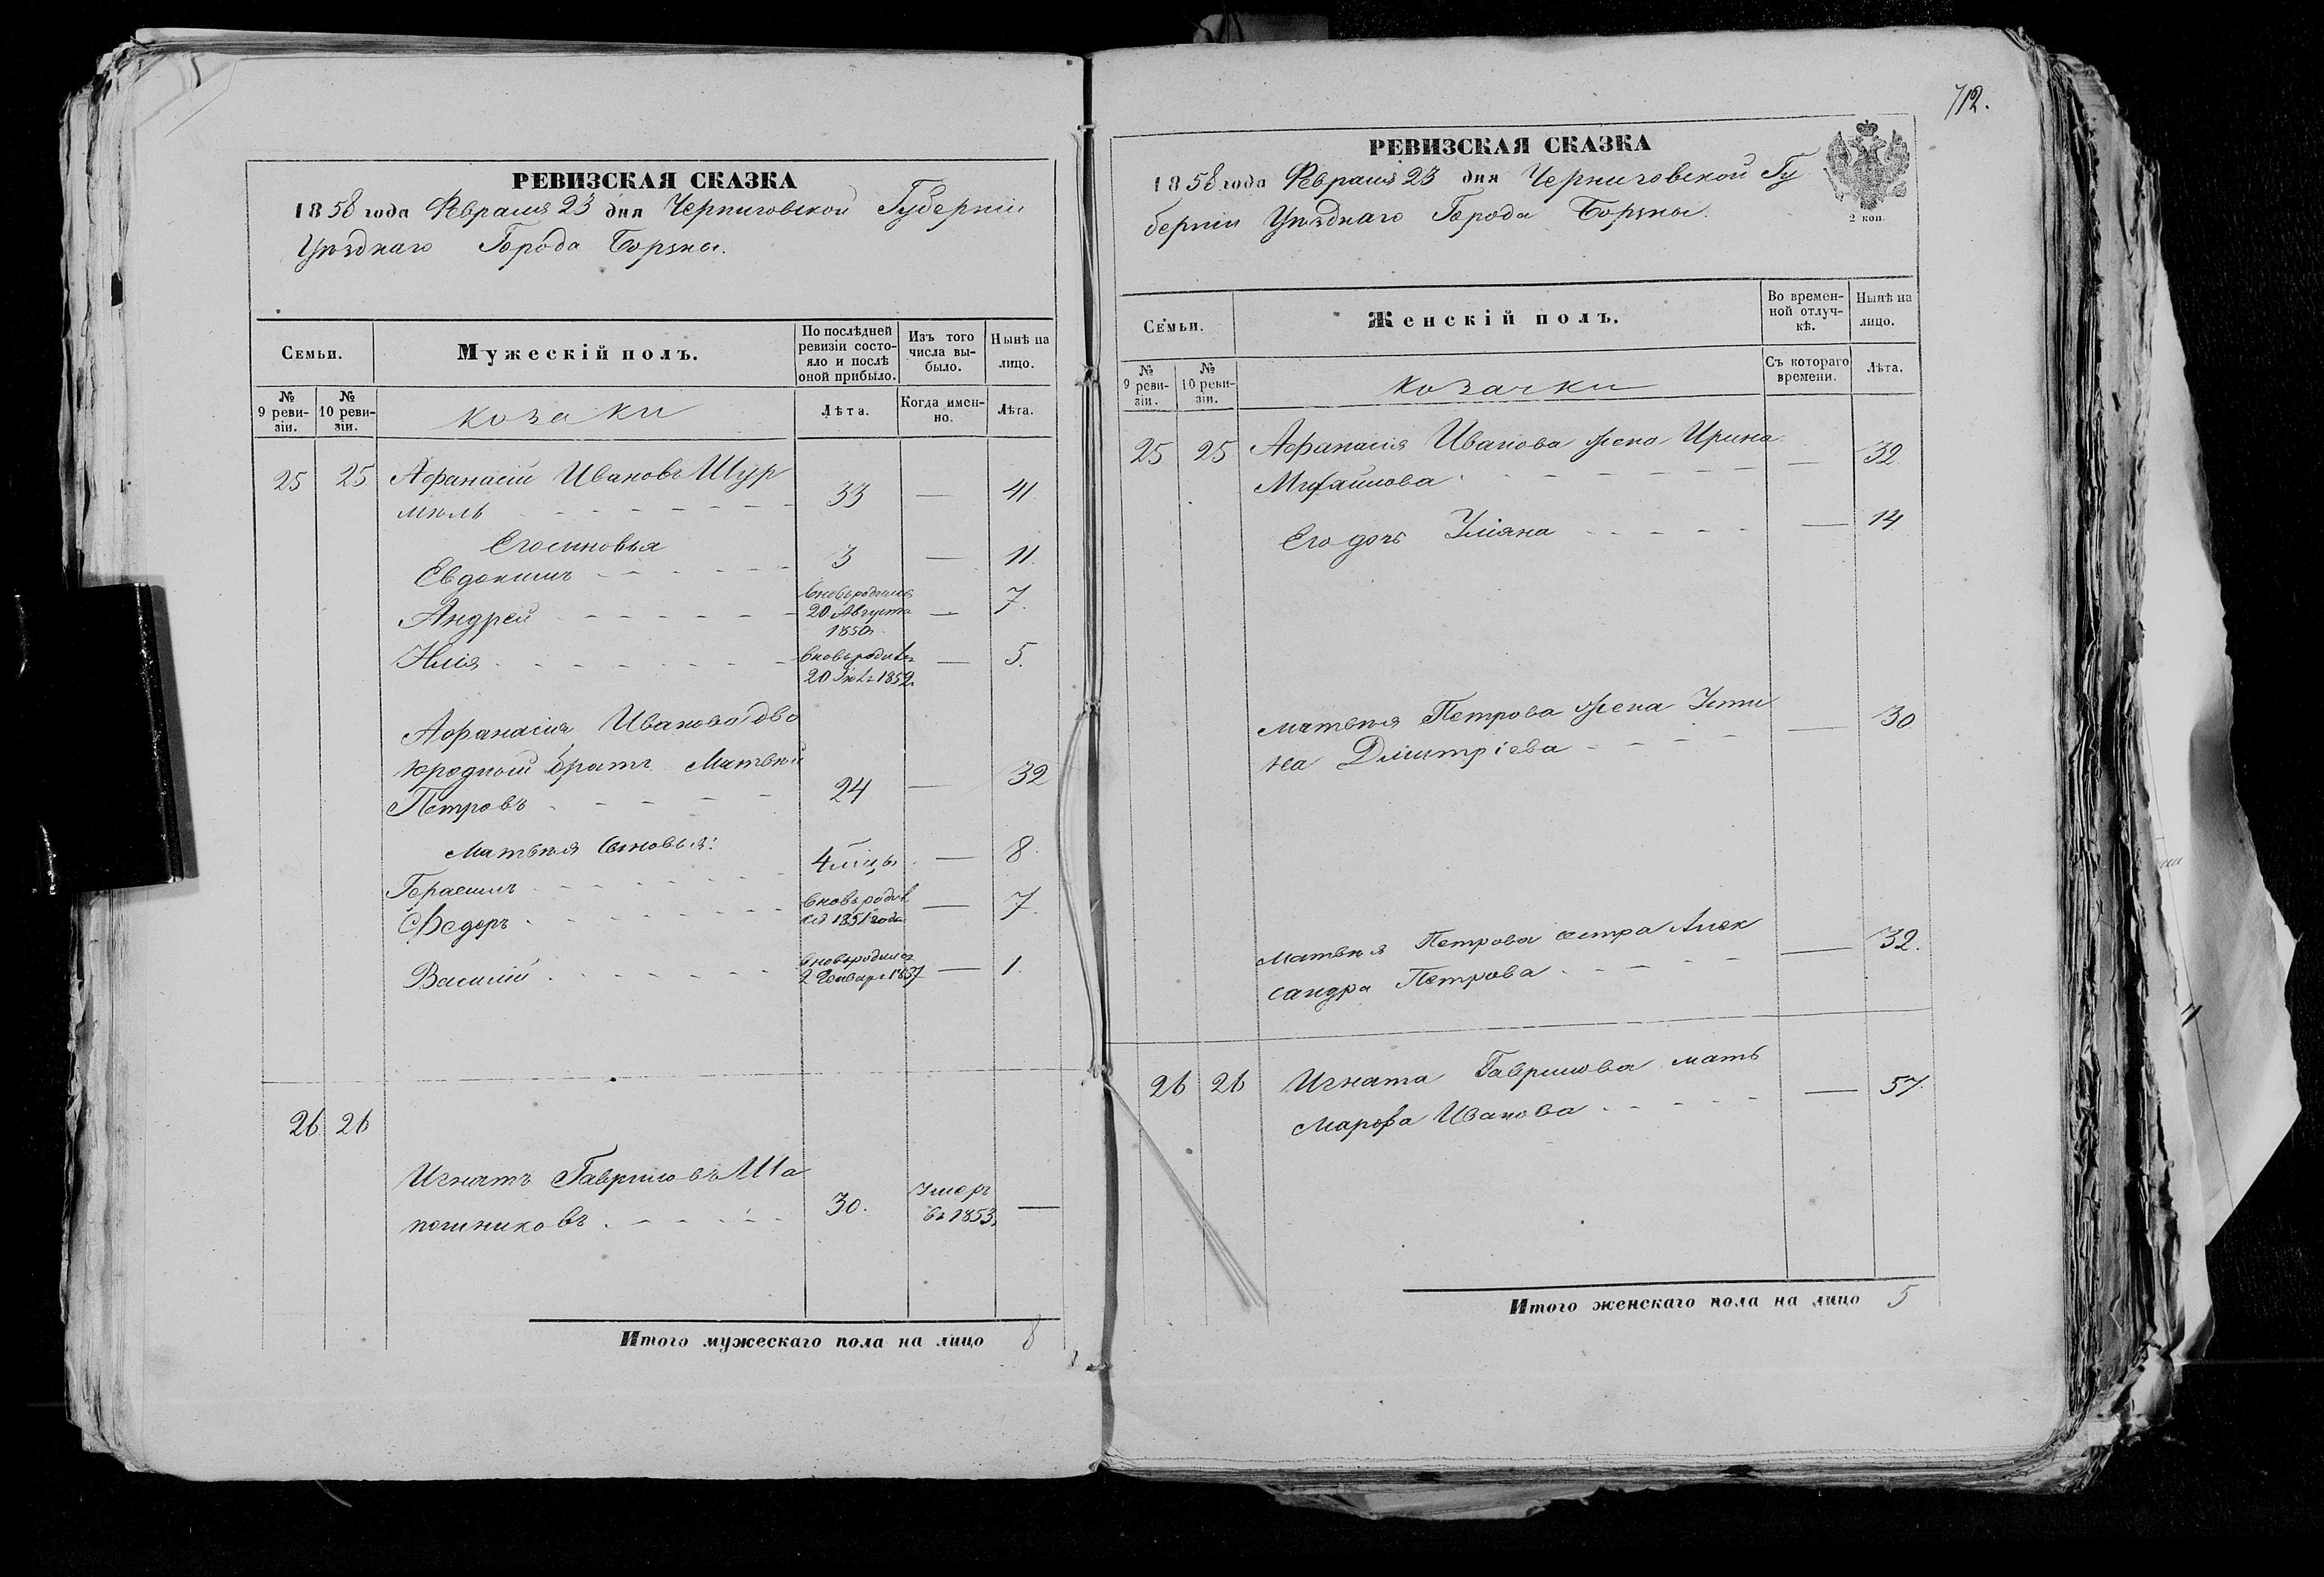 712.
РЕВИЗСКАЯ СКАЗКА
1858 года Февраля 23 дня Черниговской Губерніи
Уѣзднаго Города Борзны.
Семьи.
Мужескій полъ.
По послѣдней ревизіи состояло и послѣ оной прибыло.
Изъ того числа выбыло.
Нынѣ на лицо.
№ 9 ревизіи.
№ 10 ревизіи.
козаки
Лѣта.
Когда именно.
Лѣта.
25 25 Афанасій Ивановъ Шур
мѣль - - - - - - 33 — 41
Его сыновья
Евдокимъ - - - - - 3 — 11.
Андрей - - - - - - вновь родился 20 Августа 1850 г. — 7.
Илія - - - - - - 1852 — 5.
Афанасія Иванова дво
юродный братъ Матвѣй
Петровъ - - - - - 24 — 32
Матвѣя сыновья:
Герасимъ - - - - - 4 мѣцы — 8.
Федоръ - - - - - - вновь родил ся 1851 года — 7.
Василій - - - - - - вновь родился 2 Генваря 1857 — 1.
26 26
Игнатъ Гавриловъ Ша
почниковъ - - - - - 30. Умеръ въ 1853 г. —
Итого мужескаго пола на лицо 8
РЕВИЗСКАЯ СКАЗКА
1858 года Февраля 23 дня Черниговской Гу
берніи Уѣзднаго Города Борзны.
2 коп.
Семьи.
Женскій полъ.
Во временной отлучкѣ.
Нынѣ на лицо.
№ 9 ревизіи.
№ 10 ревизіи.
козачки
Съ котораго времени.
Лѣта.
25 25 Афанасія Иванова жена Ирина
Михайлова - - - - - - — 32
Его дочь Уліяна - - - - - — 14
Матвѣя Петрова жена Усти
на Дмитріева - - - - — 30.
Матвѣя Петрова сестра Алек
сандра Петрова - - - - — 32.
26 26 Игната Гаврилова мать
Марфа Иванова - - - - - — 57.
Итого женскаго пола на лицо 5